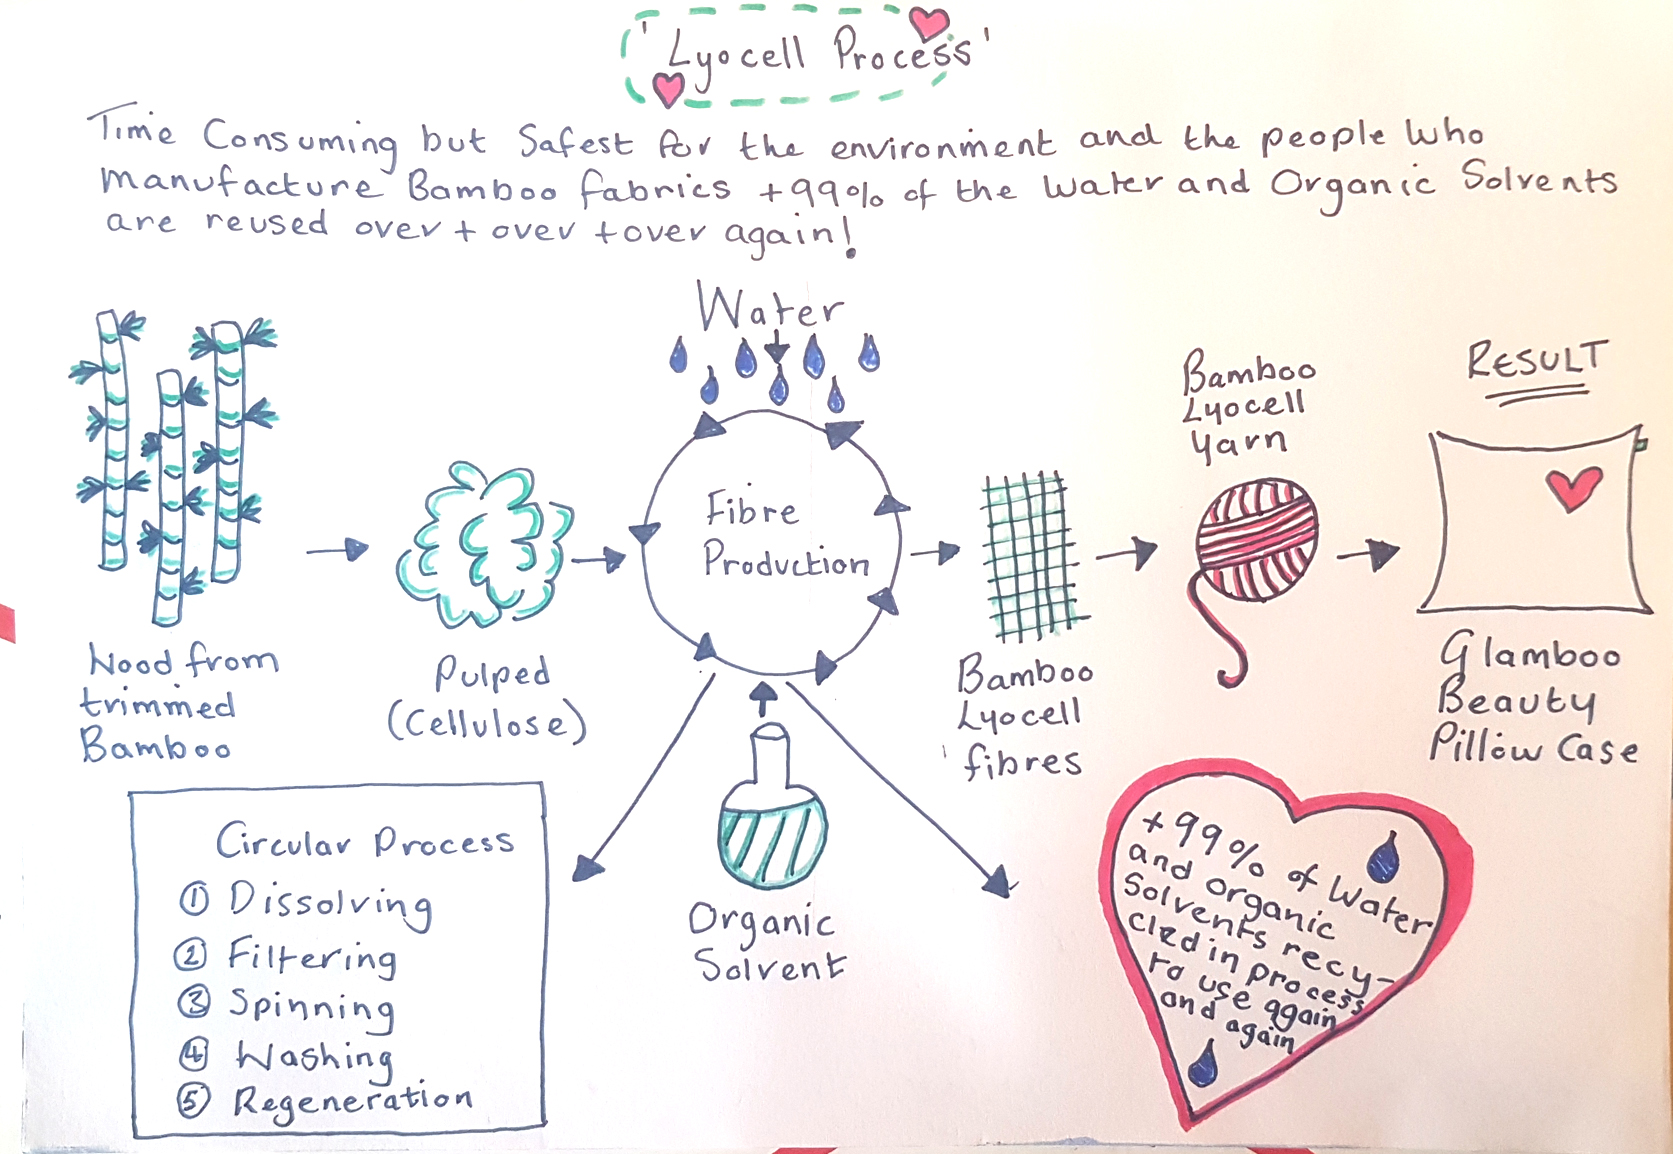 'Lyocell Process'
Time Consuming but Safest for the environment and the people who
manufacture Bamboo fabrics +99% of the Water and Organic Solvents
are reused over + over + over again!
Water
Fibre
Production
Wood from
trimmed
Bamboo
Pulped
(Cellulose)
Organic
Solvent
Bamboo
Lyocell
fibres
Bamboo
Lyocell
Yarn
RESULT
Glamboo
Beauty
Pillow Case
Circular Process
① Dissolving
② Filtering
③ Spinning
④ Washing
⑤ Regeneration
+99% of Water
and organic
Solvents recy-
cled in process
to use again
and again